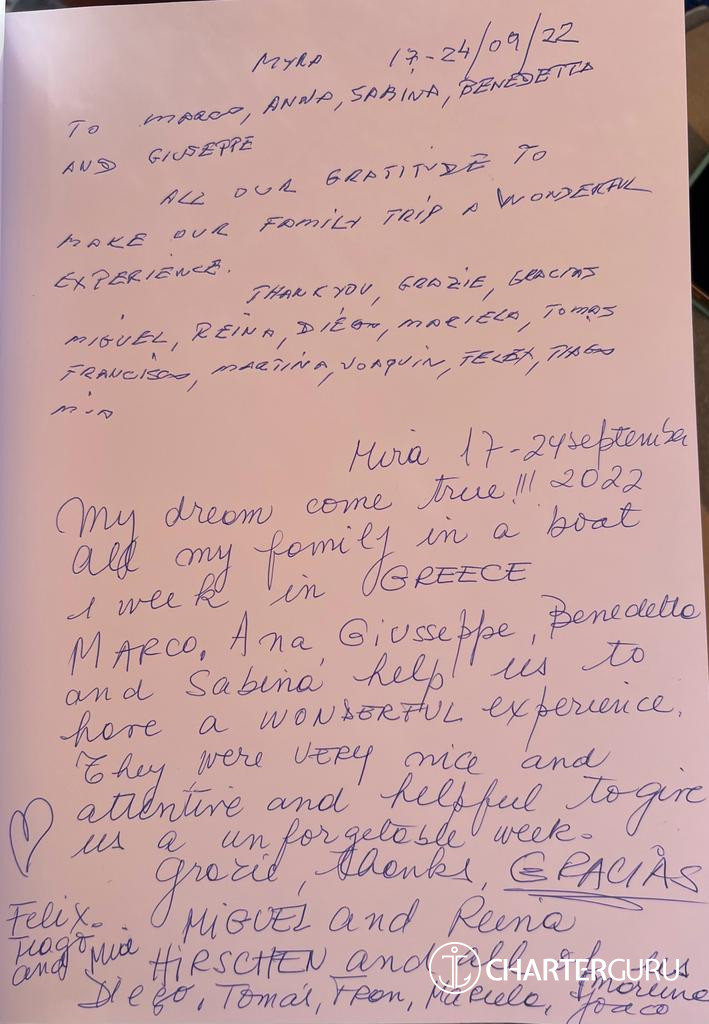 MYRA 17-24/09/22
TO MARCO, ANNA, SABINA, BENEDETTA
AND GIUSEPPE
ALL OUR GRATITUDE TO
MAKE OUR FAMILY TRIP A WONDERFUL
EXPERIENCE.
THANK YOU, GRAZIE, GRACIAS
MIGUEL, REINA, DIEGO, MARIELA, TOMAS
FRANCISCO, MARTINA, JOAQUIN, FELIX, TIAGO
MIA
Mira 17-24 september
My dream come true!!! 2022
all my family in a boat
1 week in GREECE
MARCO, Ana, Giusseppe, Benedetta
and Sabina help us to
have a WONDERFUL experience.
They were VERY nice and
attentive and helpful to give
us a unforgetable week.
Grazie, thanks, GRACIAS
MIGUEL and Reina
HIRSCHEN and all
Felix.
Tiago
and Mia
Diego, Tomás, Fran, Mariela,
Joaco
CHARTERGURU